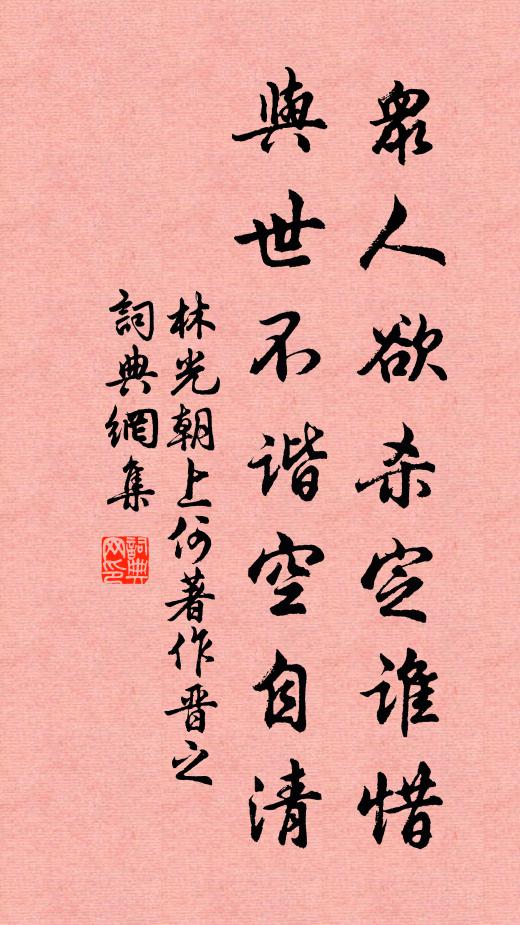 眾人欲杀定誰惜
與世不谐空自清
林光朝上何著作晋之
詞典網集
詞典網印